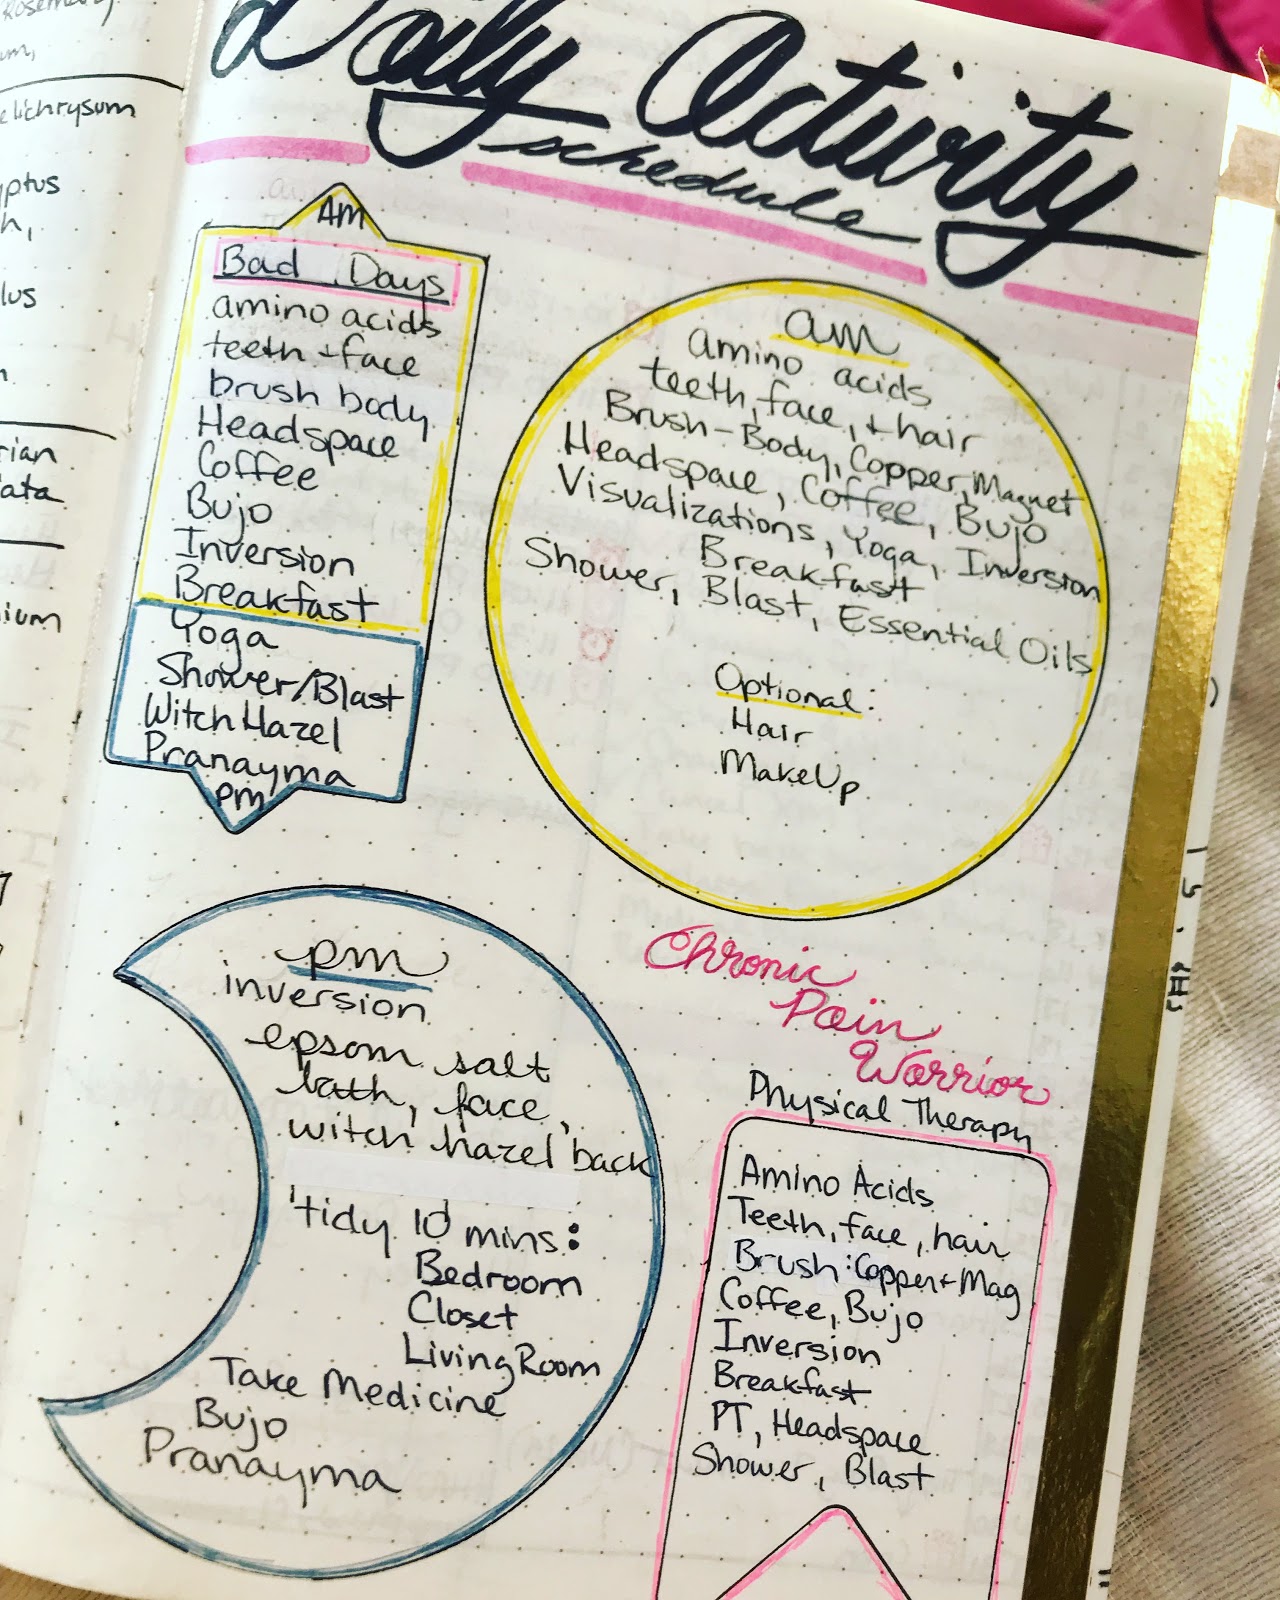 Daily Activity
schedule
AM
Bad Days
amino acids
teeth + face
brush body
Headspace
Coffee
Bujo
Inversion
Breakfast
Yoga
Shower/Blast
Witch Hazel
Pranayma
pm
am
amino acids
teeth, face, + hair
Brush-Body, Copper, Magnet
Headspace, Coffee, Bujo
Visualizations, Yoga, Inversion
Breakfast
Shower, Blast, Essential Oils
Optional:
Hair
MakeUp
pm
inversion
epsom salt
bath, face,
witch hazel back
tidy 10 mins:
Bedroom
Closet
Living Room
Take Medicine
Bujo
Pranayma
Chronic
Pain
Warrior
Physical Therapy
Amino Acids
Teeth, face, hair
Brush: Copper + Mag
Coffee, Bujo
Inversion
Breakfast
PT, Headspace
Shower, Blast